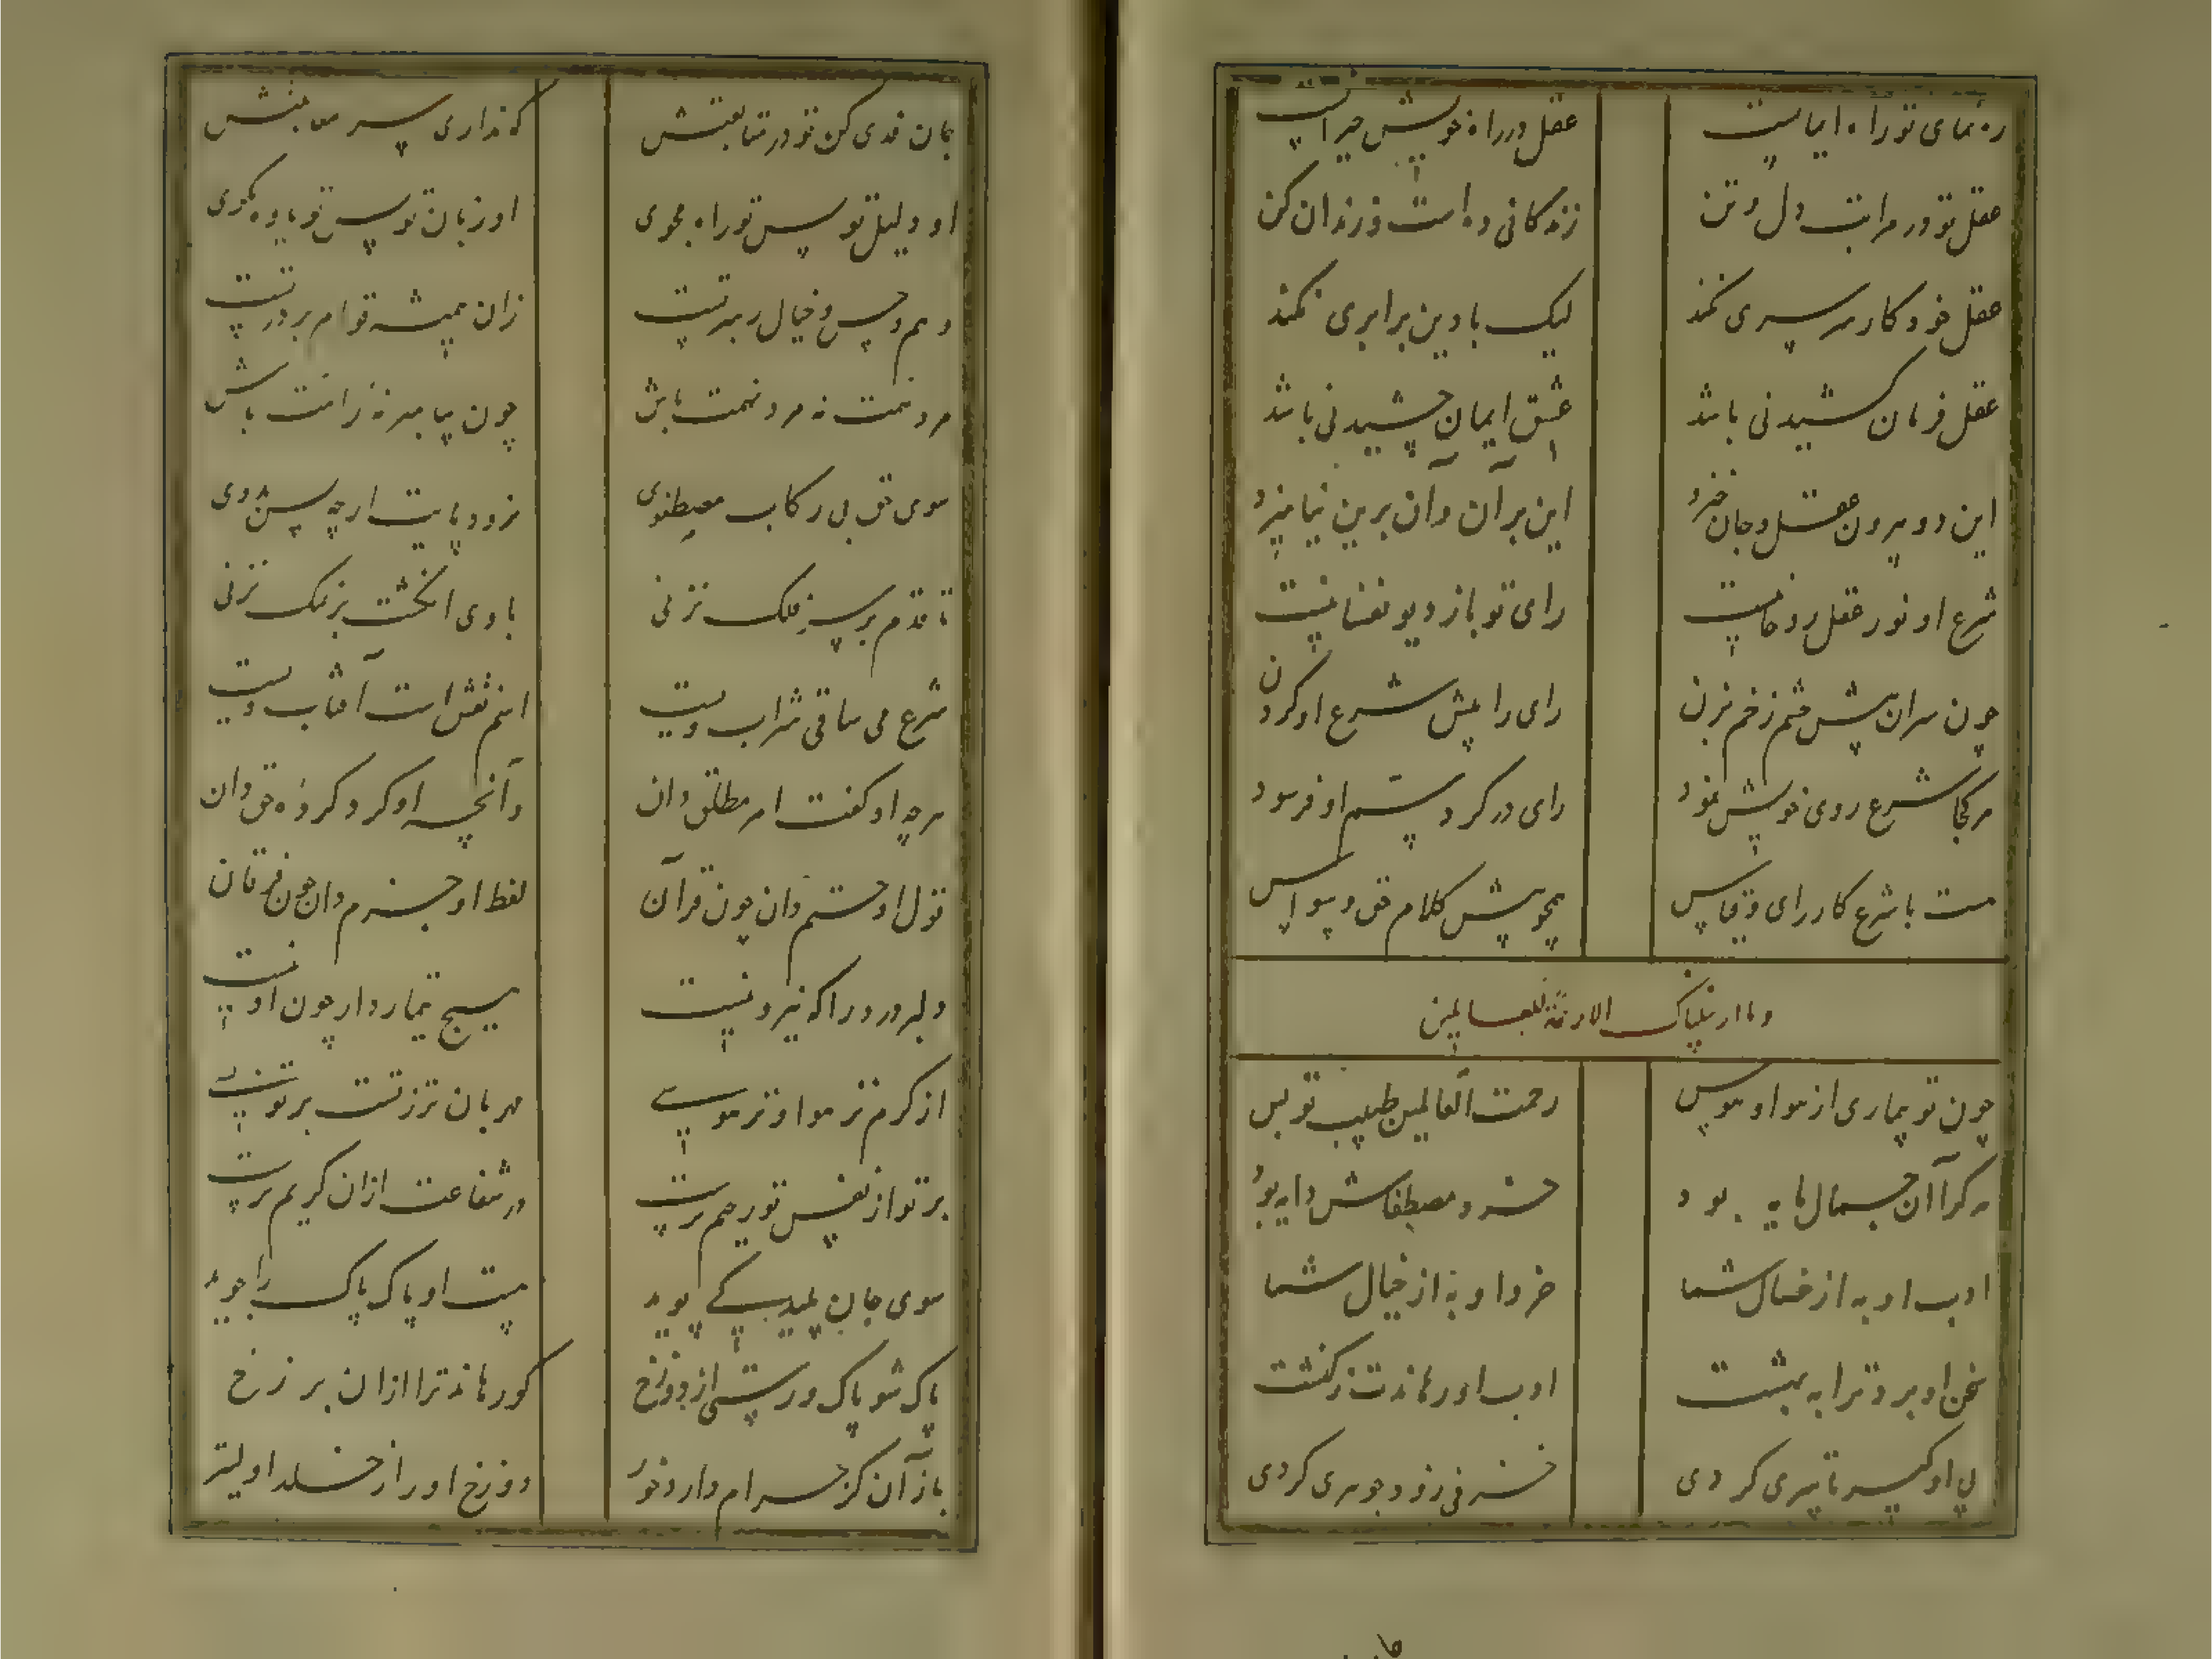 ره نمای تو راه ایمانست عقل در راه خویش حیرانست
عقل تو در مراتب دل و تن زندگانی ده است فرزندان کن
عقل خود کار سرسری نکند لیک با دین برابری نکند
عقل فرمان کشیدنی باشد عشق ایمان چشیدنی باشد
این دو بیرون عقل و جان خیزد این بر آن و آن برین نیامیزد
شرع او نور عقل روحانیست رای تو باز دیو نفسانیست
چون سران پیش خشم زخم مزن رای را پیش شرع او کردن
هر کجا شرع روی خویش نمود رای در گرد سم او فرسود
هست با شرع کار رای و قیاس همچو پیش کلام حق وسواس
وما ارسلناک الا رحمة للعالمین
چون تو بیماری از هوا و هوس رحمت العالمین طبیب تو بس
هر کرا آن جمال مایه بود خرد مصطفاش دایه بود
ادب او به از خصال شما خرد او به از خیال شما
سخن او برد ترا به بهشت ادب او رهاندت ز کنشت
پی او گیر تا سری کردی خزفی زود جوهری کردی
جان فدی کن تو در متابعتش که نداری سر
او دلیل تو بس تو راه مجوی او زبان تو بس تو یاوه مگوی
وهم و حس و خیال رهبر تست زان همیشه قوام بر در تست
مرد همت نه مرد نهمت باش چون پیامبر نه ز امت باش
سوی حق بی رکاب مصطفوی نرود پایت ارچه بس بدوی
تا قدم بر سر فلک نزنی با وی انگشت بر نمک نزنی
شرع می ساقی شراب ویست انجم نقش است آفتاب ویست
هرچه او گفت امر مطلق دان وآنچه او کرد کردهٔ حق دان
قول او ختم دان چون قرآن لفظ او جزم دان چون فرقان
دلبر و درد را که نیرو نیست هیچ تیمار دار چون او نیست
از کرم نز هوا و نز هوسی مهربان تر ز تست بر تو بسی
بر تو از نفس تو رحیم ترست در شفاعت از آن کریم ترست
سوی جان پلید کی پوید هست او پاک پاک را جوید
پاک شو پاک و رستی از دوزخ کو رهاند ترا از آن برزخ
باز آن کز حرام دارد خور دوزخ او را ز خلد اولیتر